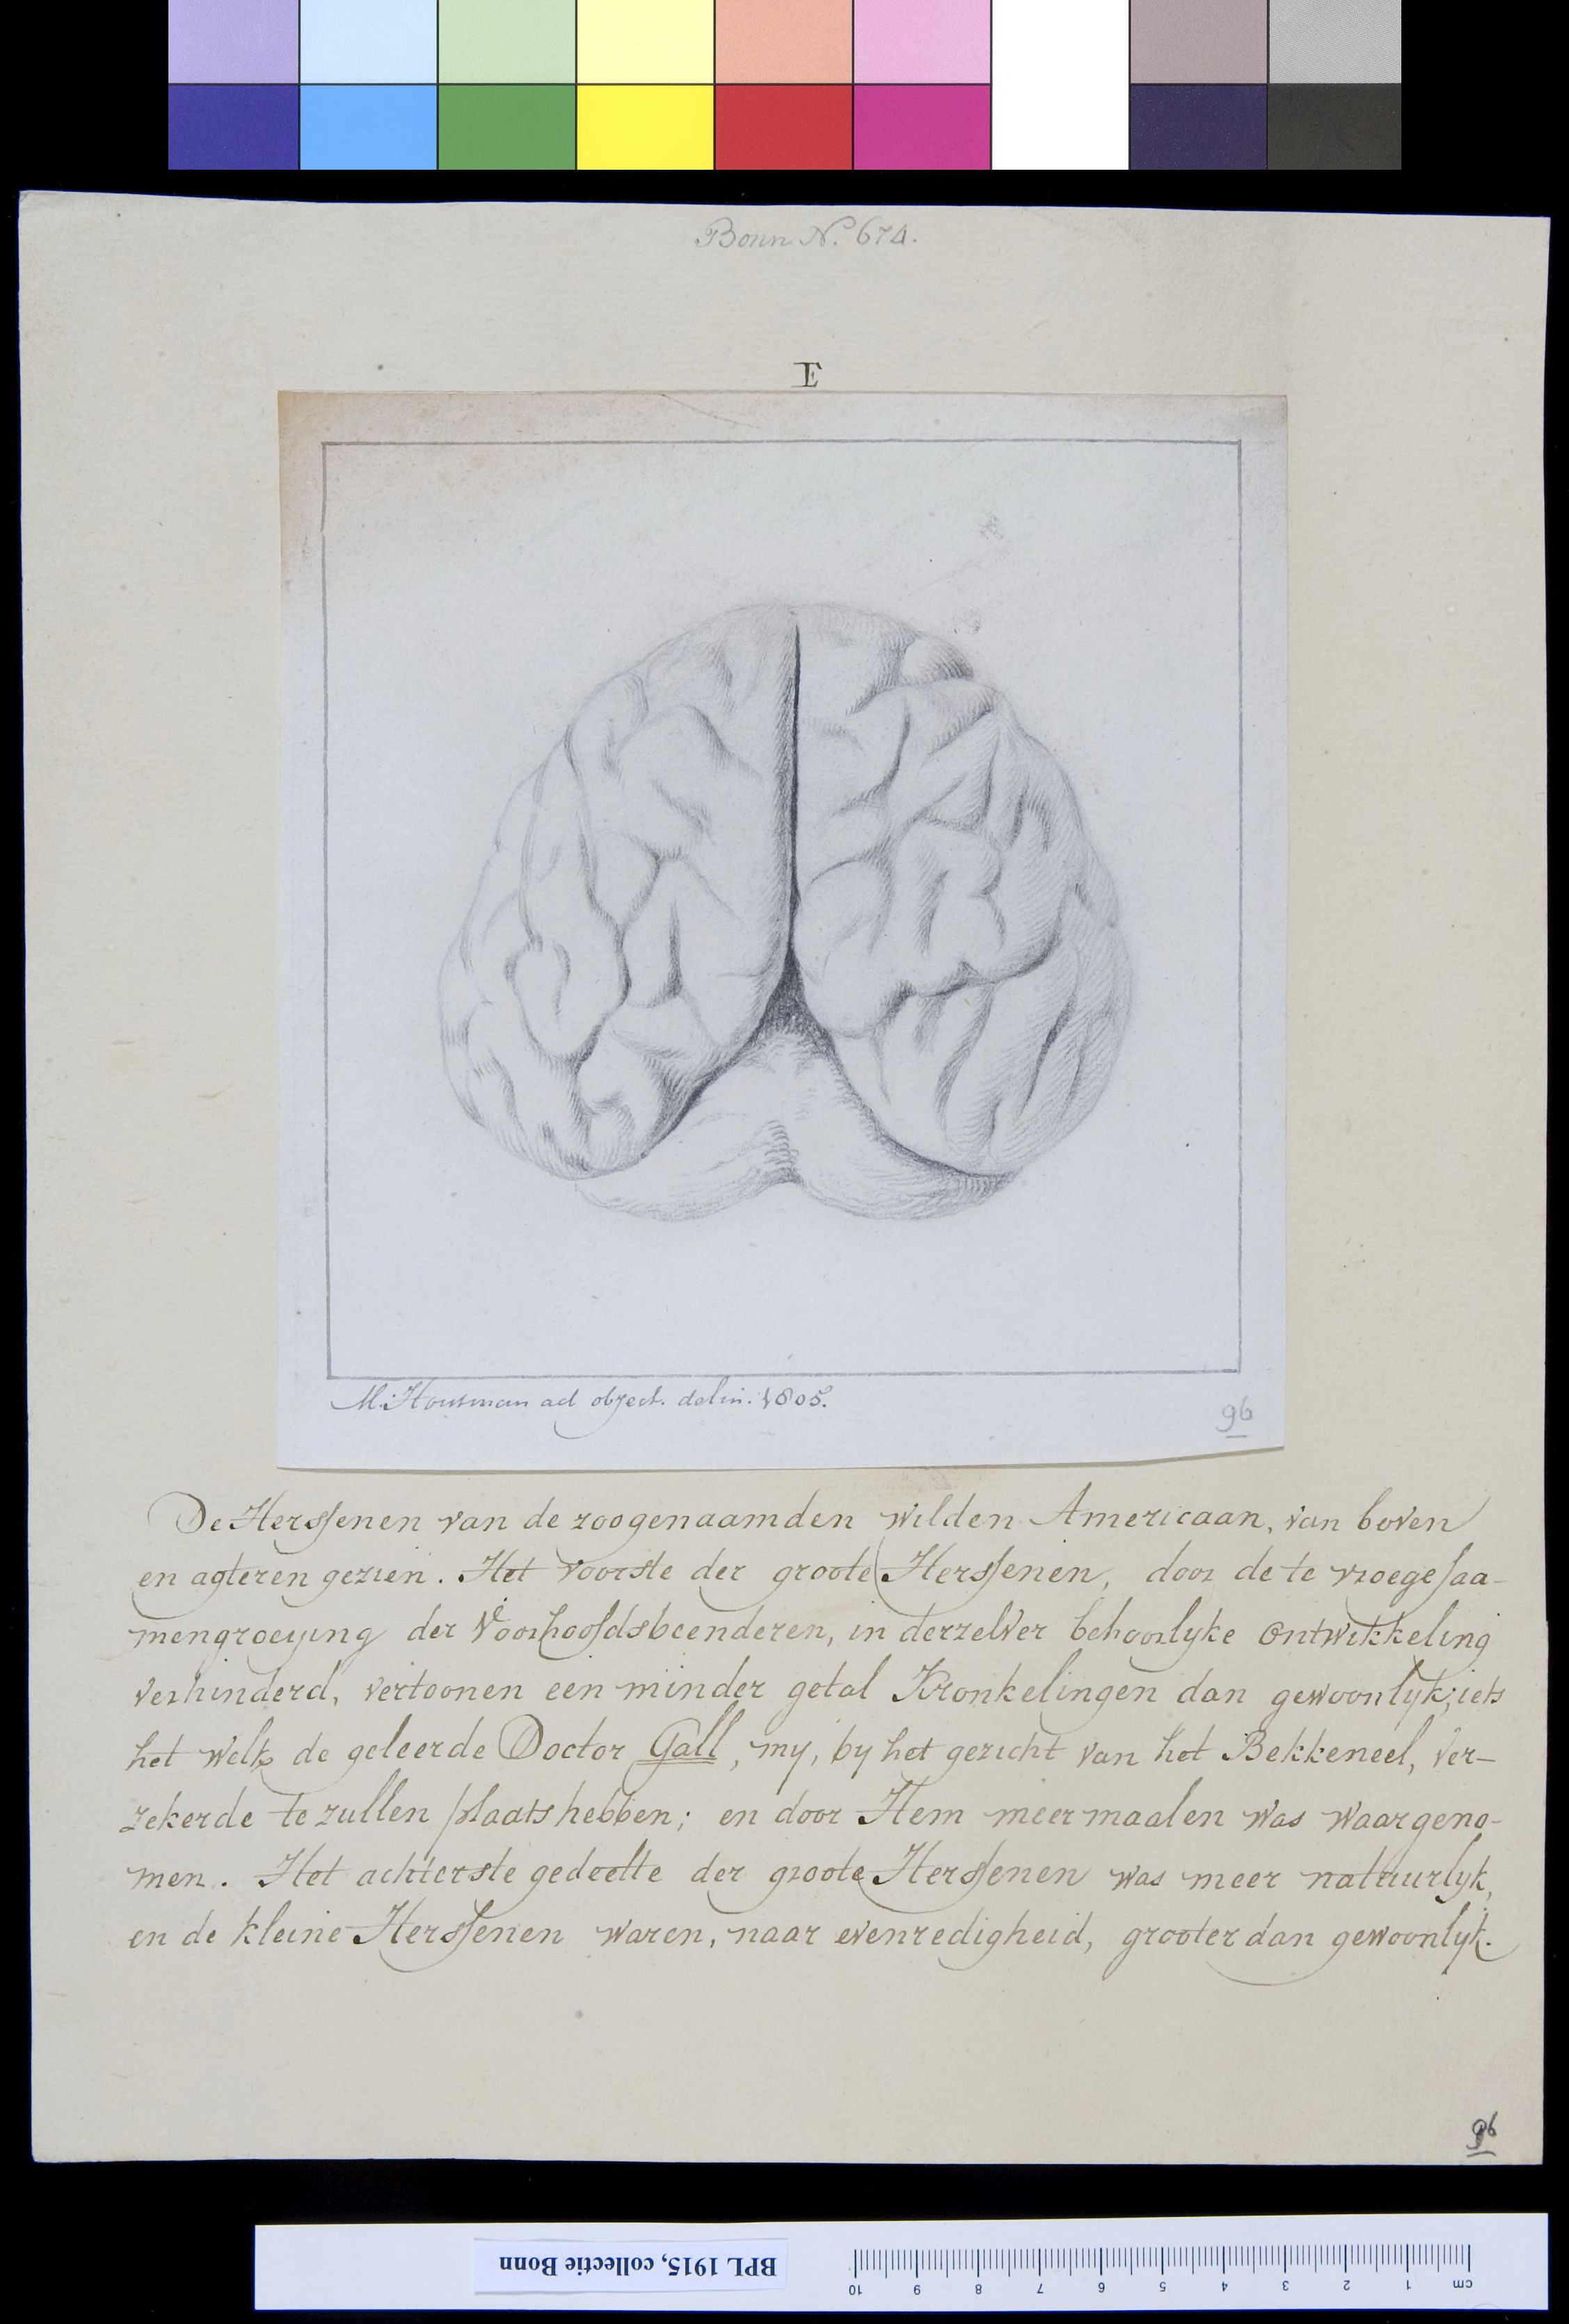 Bonn N.º 674.
E
M. Housman ad object. delin. 1805.
96
De Herssenen van de zoogenaamden wilden Americaan, van boven
en agteren gezien. Het voorste der groote Herssenen, door de te vroege saa-
mengroeying der Voorhoofdsbeenderen, in derzelver behoorlyke ontwikkeling
verhinderd, vertoonen een minder getal Kronkelingen dan gewoonlyk; iets
het welk de geleerde Doctor Gall, my, by het gezicht van het Bekkeneel, ver-
zekerde te zullen plaats hebben; en door Hem meermaalen was waargeno-
men. Het achterste gedeelte der groote Herssenen was meer natuurlyk,
en de kleine Herssenen waren, naar evenredigheid, grooter dan gewoonlyk.
96
BPL 1915, collectie Bonn
cm 1 2 3 4 5 6 7 8 9 10